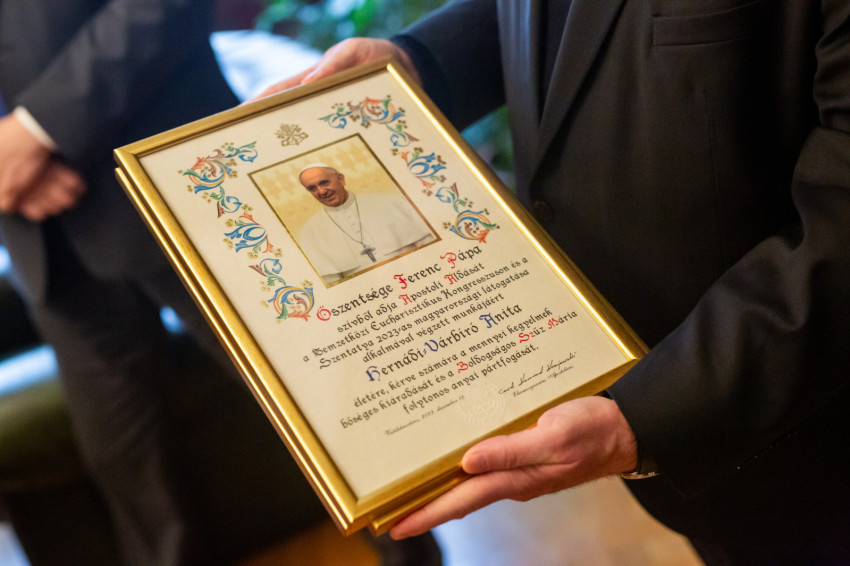 Őszentsége Ferenc Pápa
szívből adja Apostoli Áldását
a Nemzetközi Eucharisztikus Kongresszuson és a
Szentatya 2023-as magyarországi látogatása
alkalmával végzett munkájáért
Hernádi-Várbíró Anita
életére, kérve számára a mennyei kegyelmek
bőséges kiáradását és a Boldogságos Szűz Mária
folytonos anyai pártfogását.